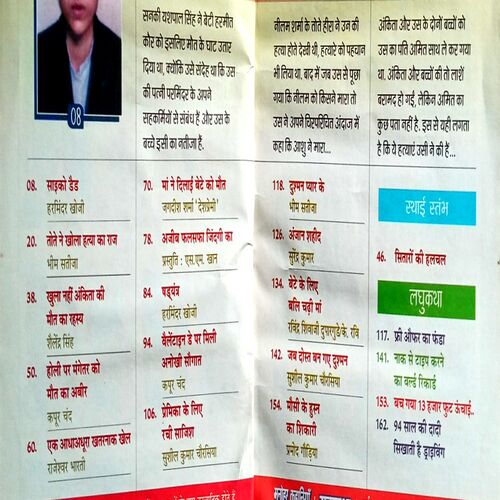 08
सनकी यशपाल सिंह ने बेटी हरमीत
कौर को इसलिए मौत के घाट उतार
दिया था, क्योंकि उसे संदेह था कि उस
की पत्नी परमिंदर के अपने
सहकर्मियों से संबंध हैं और उस के
बच्चे इसी का नतीजा हैं.
नीलम शर्मा के तोते हीरा ने उन की
हत्या होते देखी थी, हत्यारे को पहचान
भी लिया था. बाद में जब उस से पूछा
गया कि नीलम को किसने मारा तो
उस ने अपने चिरपरिचित अंदाज में
कहा कि आशु ने मारा...
अंकिता और उस के दोनों बच्चों को
उस का पति अमित साथ ले कर गया
था. अंकिता और बच्चों की तो लाशें
बरामद हो गईं, लेकिन अमित का
कुछ पता नहीं है. इस से यही लगता
है कि ये हत्याएं उसी ने की हैं...
08. साइको डैड
हरमिंदर खोजी
20. तोते ने खोला हत्या का राज
भीम सतीजा
38. खुला नहीं अंकिता की
मौत का रहस्य
शैलेंद्र सिंह
50. होली पर मंगेतर को
मौत का अबीर
कपूर चंद
60. एक आधाअधूरा खतरनाक खेल
राजेश्वर भारती
70. मां ने दिलाई बेटे को मौत
जगदीश शर्मा 'देशप्रेमी'
78. अजीब फलसफा जिंदगी का
प्रस्तुति : एस.एम. खान
84. षड्यंत्र
हरमिंदर खोजी
94. वैलेंटाइन डे पर मिली
अनोखी सौगात
कपूर चंद
106. प्रेमिका के लिए
रची साजिश
सुशील कुमार चौरसिया
118. दुश्मन प्यार के
भीम सतीजा
126. अंजान शहीद
सुरेंद्र कुमार
134. बेटे के लिए
बलि चढ़ी मां
रविंद्र शिवाजी दुपारगुडे/के. रवि
142. जब दोस्त बन गए दुश्मन
सुशील कुमार चौरसिया
154. मौसी के हुस्न
का शिकारी
प्रमोद गौड़िया
स्थाई स्तंभ
46. सितारों की हलचल
लघुकथा
117. फ्री ऑफर का फंडा
141. नाक से टाइप करने
का वर्ल्ड रिकार्ड
153. बच गया 13 हजार फुट ऊंचाई..
162. 94 साल की दादी
सिखाती है ड्राइविंग